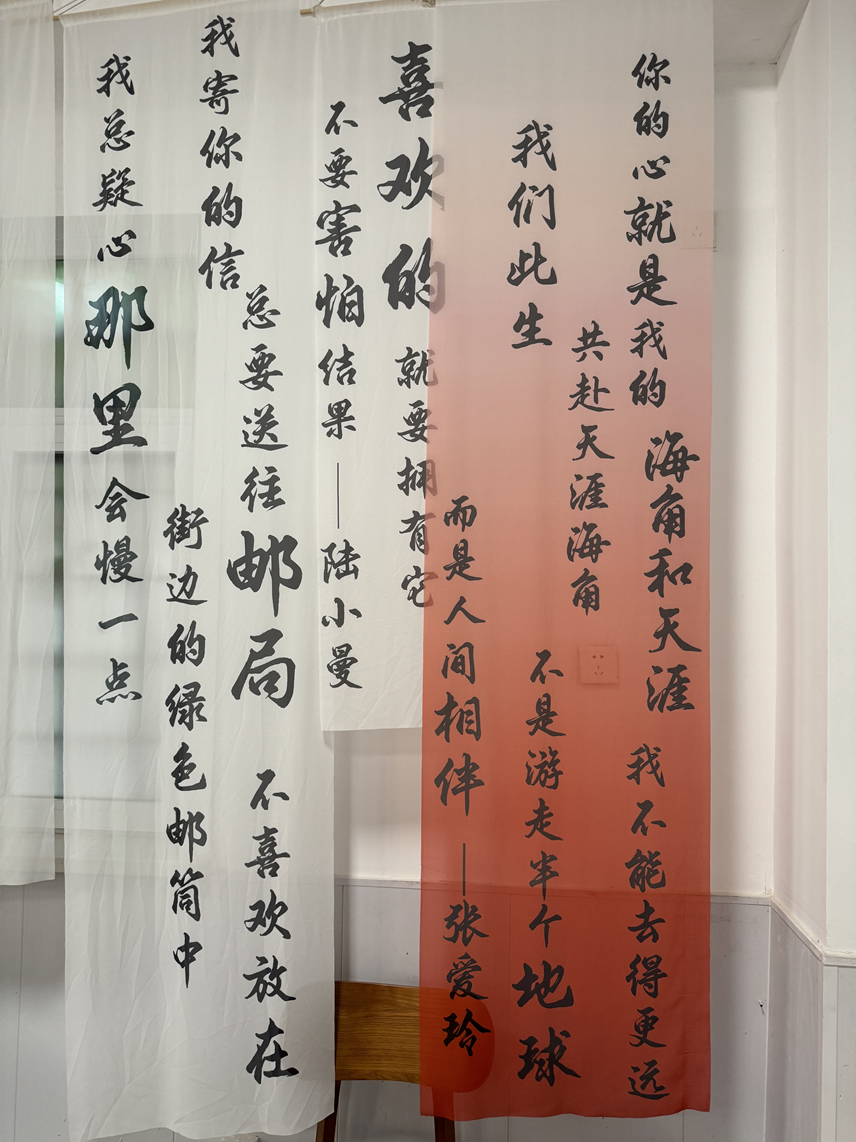 你的心就是我的
海角和天涯
我不能去得更远
我们此生
共赴天涯海角
不是游走半个地球
而是人间相伴
——张爱玲
喜欢的
就要拥有它
不要害怕结果
——陆小曼
我寄你的信
总要送往邮局
不喜欢放在
街边的绿色邮筒中
我总疑心那里会慢一点